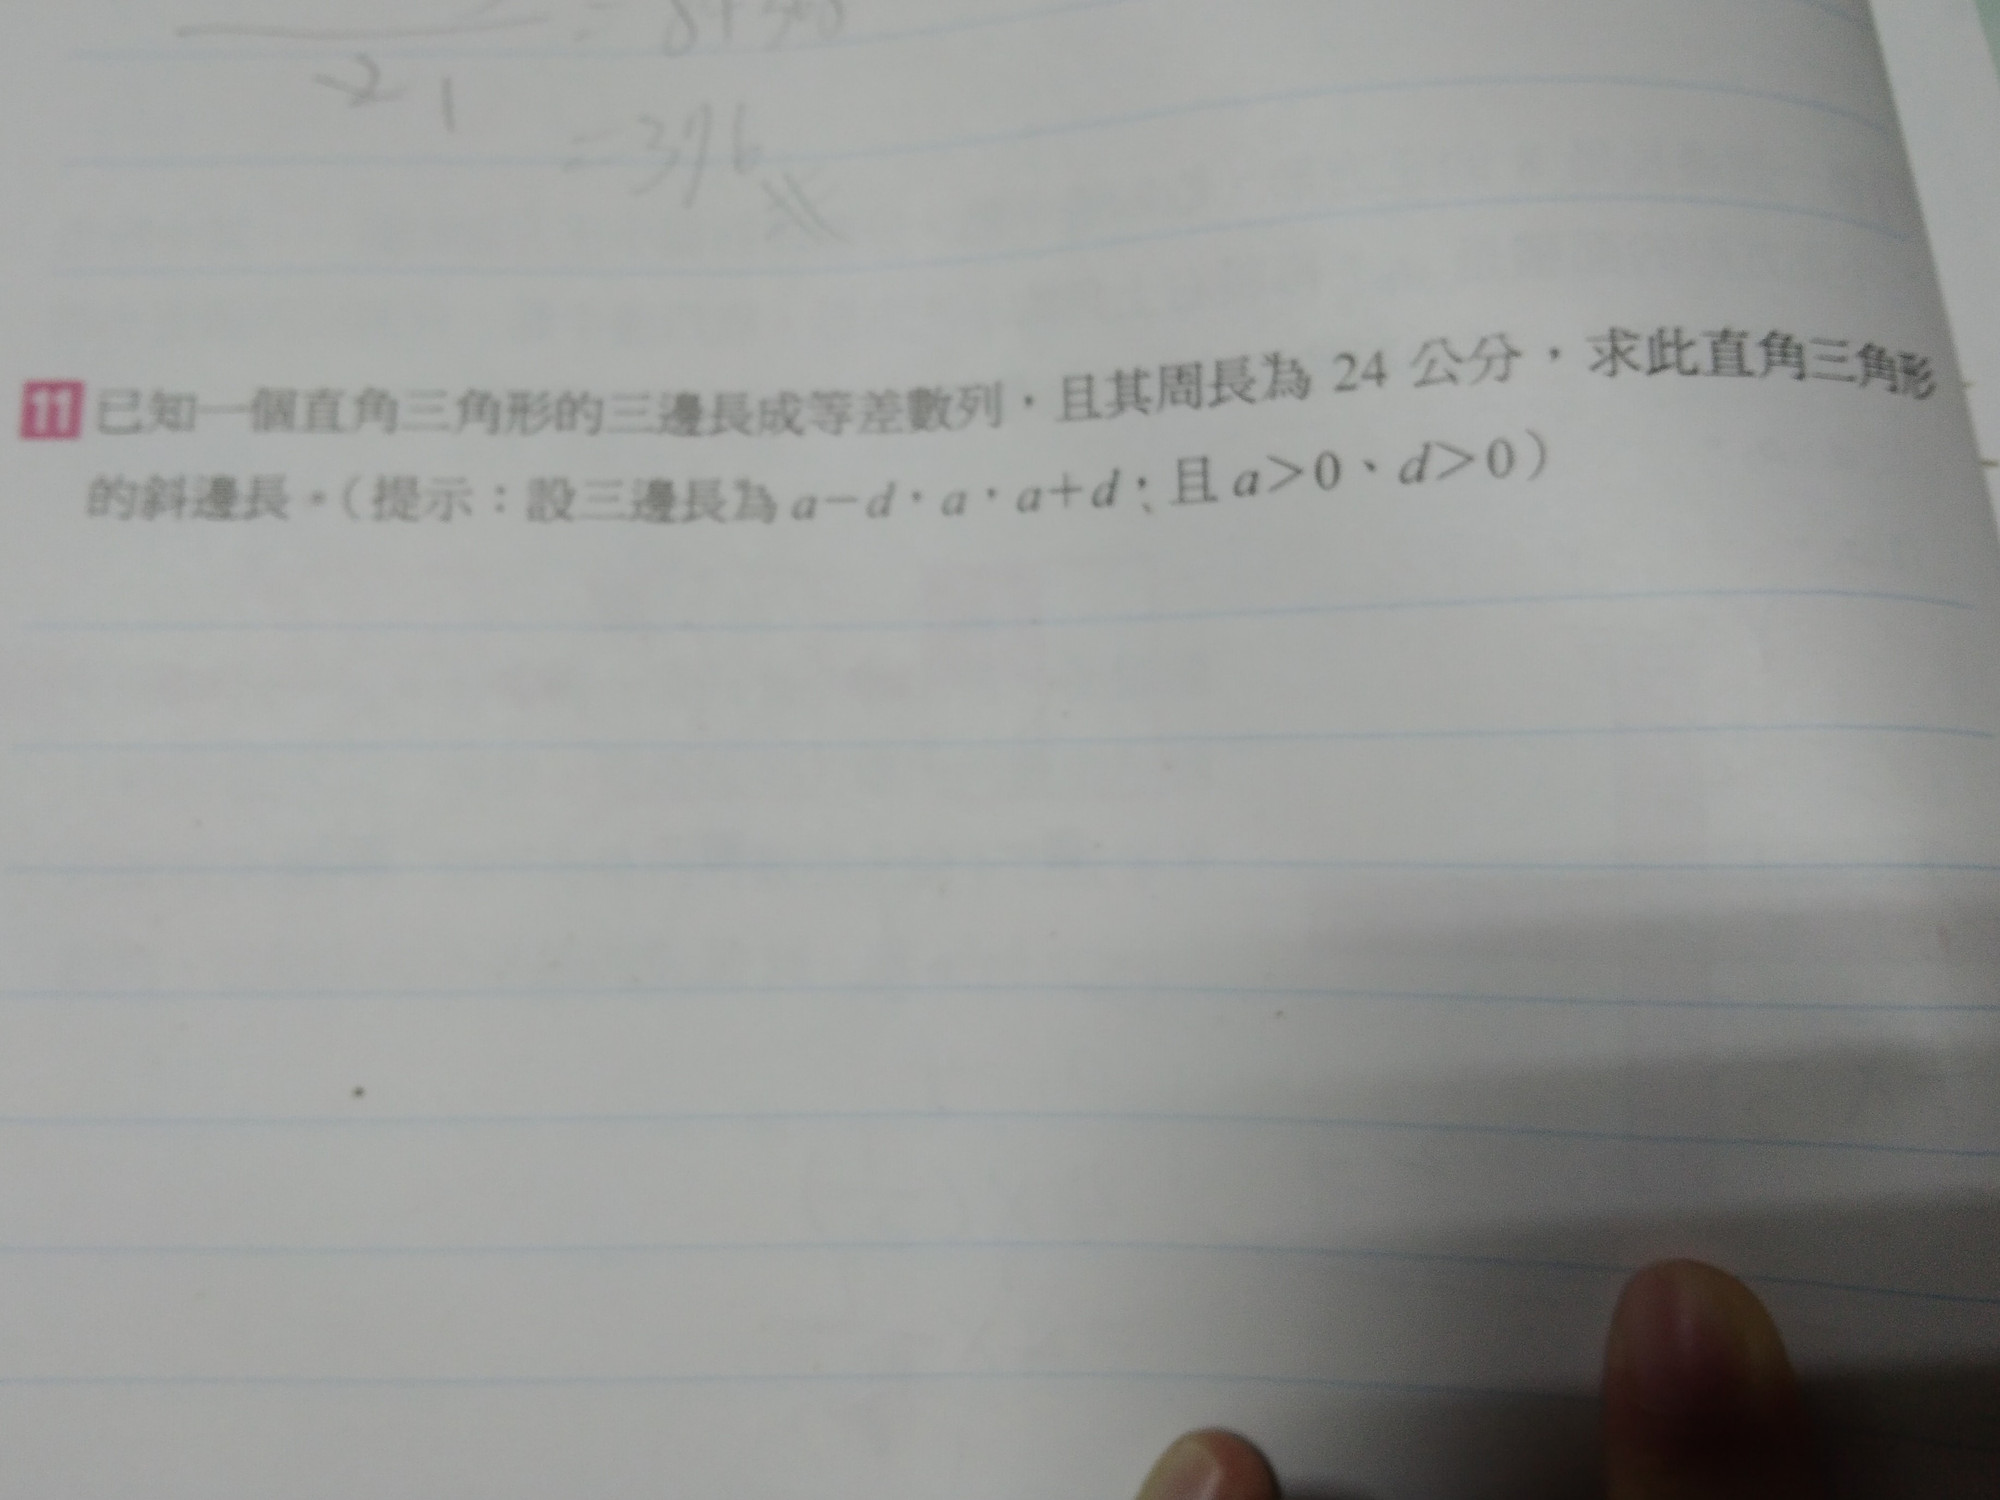 2 1
=396
11 已知一個直角三角形的三邊長成等差數列，且其周長為 24 公分，求此直角三角形
的斜邊長。（提示：設三邊長為 a−d，a，a+d；且 a>0、d>0）